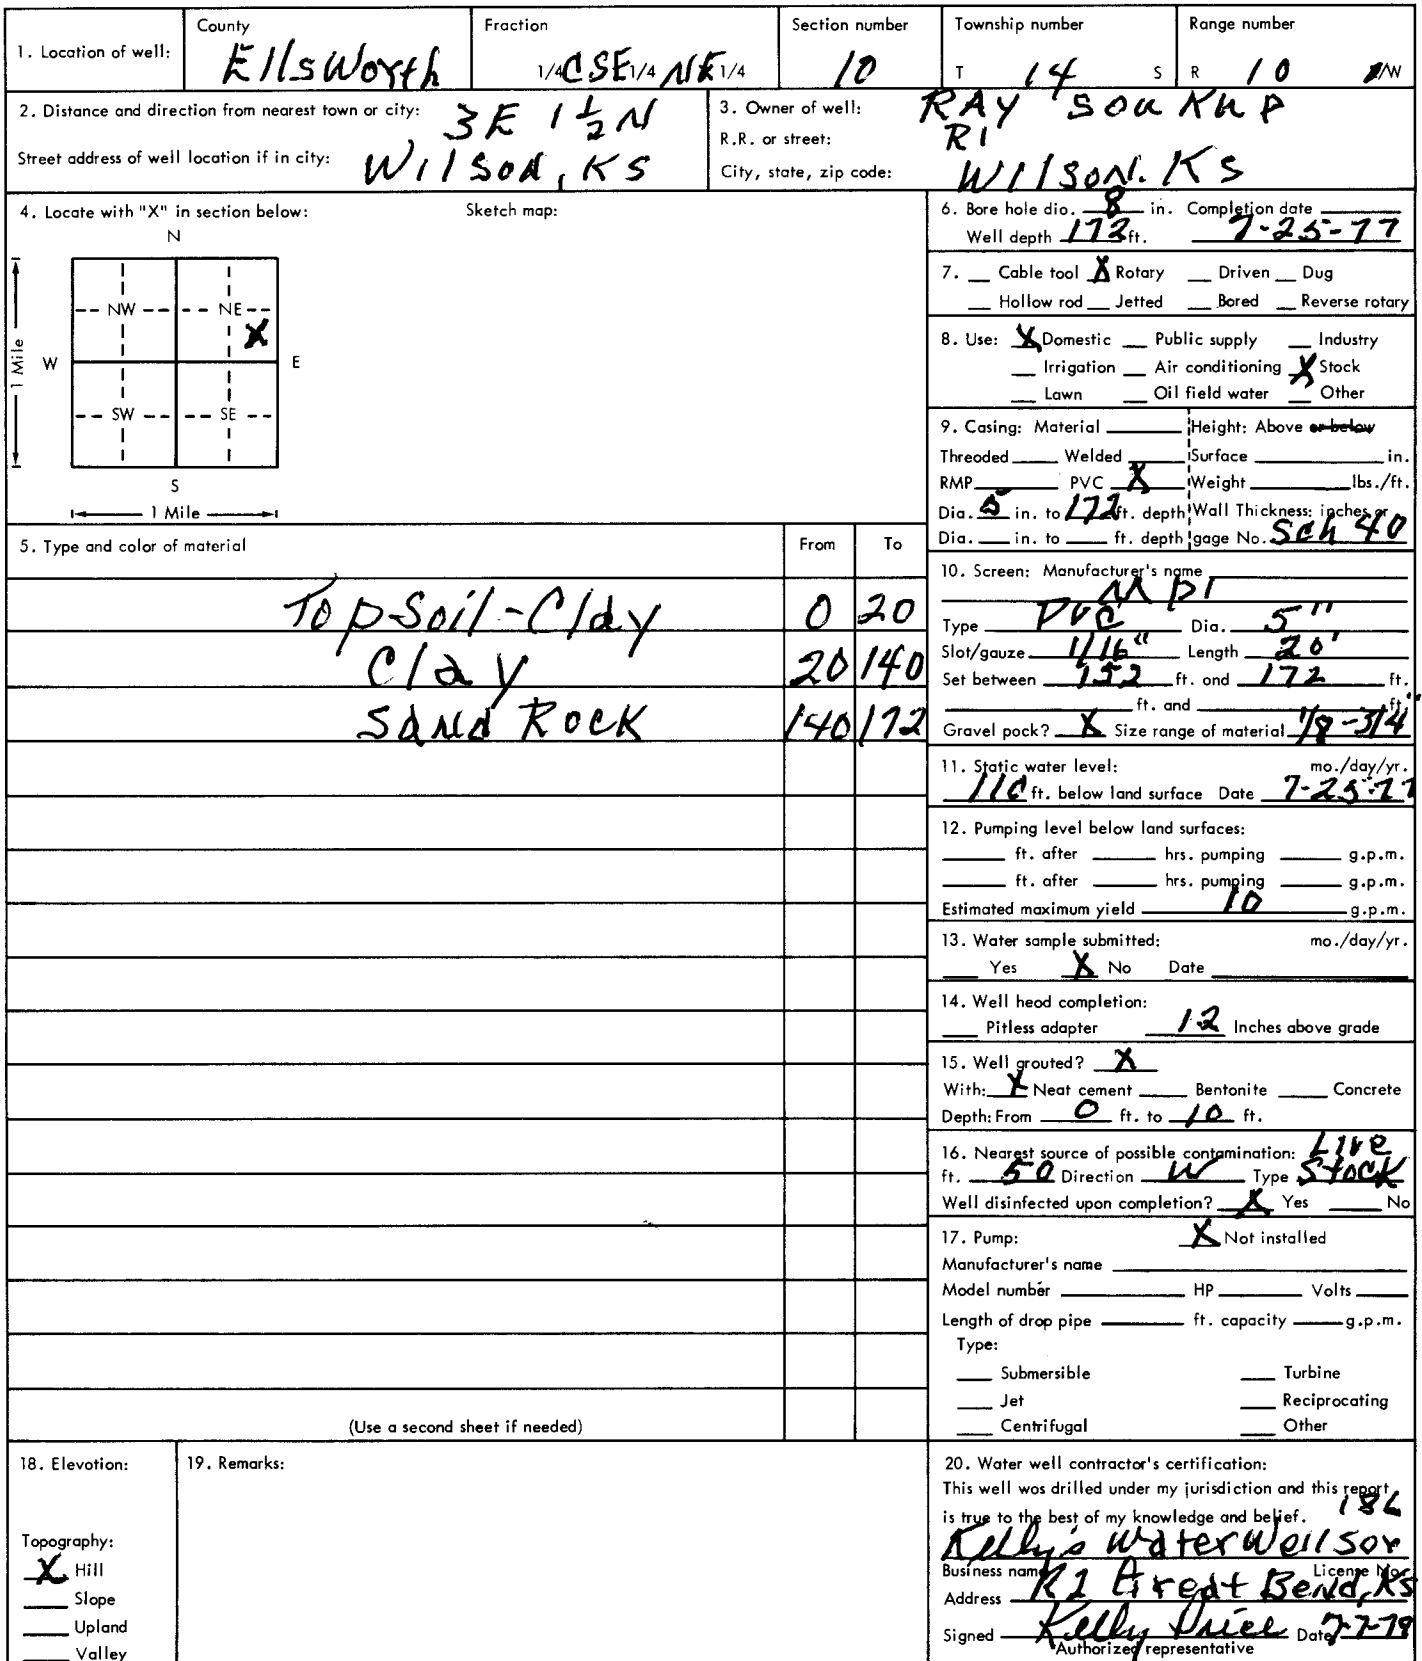 1. Location of well: County Ellsworth Fraction 1/4 CSE 1/4 NE 1/4 Section number 10 Township number T 14 S Range number R 10 /W
2. Distance and direction from nearest town or city: 3E 1 1/2 N
Street address of well location if in city: Wilson, KS
3. Owner of well: RAY SOUKUP
R.R. or street: R1
City, state, zip code: Wilson. KS
4. Locate with "X" in section below: Sketch map:
N
NW NE
X
W E
1 Mile
SW SE
S
1 Mile
5. Type and color of material From To
Top Soil-Clay 0 20
Clay 20 140
Sand Rock 140 172
(Use a second sheet if needed)
6. Bore hole dia. 8 in. Completion date
Well depth 172 ft. 7-25-77
7. Cable tool X Rotary Driven Dug
Hollow rod Jetted Bored Reverse rotary
8. Use: X Domestic Public supply Industry
Irrigation Air conditioning X Stock
Lawn Oil field water Other
9. Casing: Material Height: Above or below
Threaded Welded Surface in.
RMP PVC X Weight lbs./ft.
Dia. 5 in. to 172 ft. depth Wall Thickness: inches or
Dia. in. to ft. depth gage No. Sch 40
10. Screen: Manufacturer's name
MPI
Type PVC Dia. 5"
Slot/gauze 1/16" Length 20'
Set between 152 ft. and 172 ft.
ft. and ft.
Gravel pack? X Size range of material 1/8-3/4"
11. Static water level: mo./day/yr.
110 ft. below land surface Date 7-25-77
12. Pumping level below land surfaces:
ft. after hrs. pumping g.p.m.
ft. after hrs. pumping g.p.m.
Estimated maximum yield 10 g.p.m.
13. Water sample submitted: mo./day/yr.
Yes X No Date
14. Well head completion:
Pitless adapter 12 Inches above grade
15. Well grouted? X
With: X Neat cement Bentonite Concrete
Depth: From 0 ft. to 10 ft.
16. Nearest source of possible contamination: Live
ft. 50 Direction W Type Stock
Well disinfected upon completion? X Yes No
17. Pump: X Not installed
Manufacturer's name
Model number HP Volts
Length of drop pipe ft. capacity g.p.m.
Type:
Submersible Turbine
Jet Reciprocating
Centrifugal Other
18. Elevation:
Topography:
X Hill
Slope
Upland
Valley
19. Remarks:
20. Water well contractor's certification:
This well was drilled under my jurisdiction and this report
is true to the best of my knowledge and belief.
Kelly's Water Well Ser
Business name License No.
Address R1 Great Bend, KS
Signed Kelly Price Date
Authorized representative